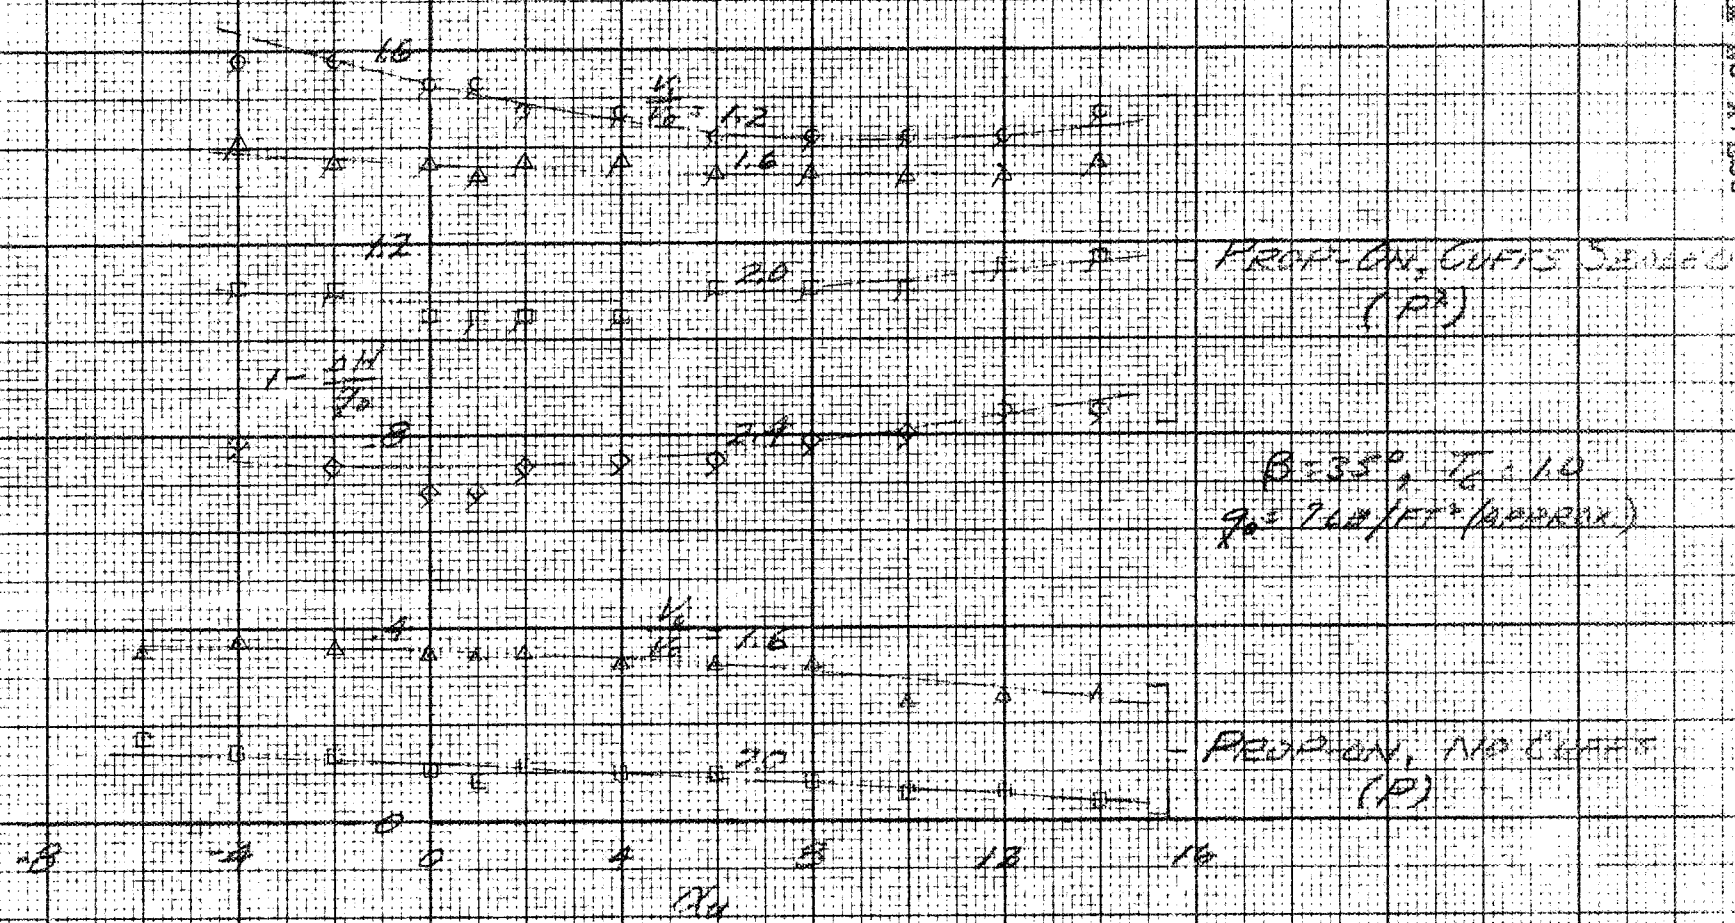 1.6
V₁/V₀ = 1.2
1.6
1.2
2.0
PROP-ON, CUFFS
(P²)
1 - ΔH/q₀
.8
2.4
β = 35°, T_c = 1.0
q₀ = 76#/FT² (APPROX.)
.4
V₁/V₀ = 1.6
2.0
PROP-ON, NO CUFFS
(P)
0
-8 -4 0 4 8 12 16
αu